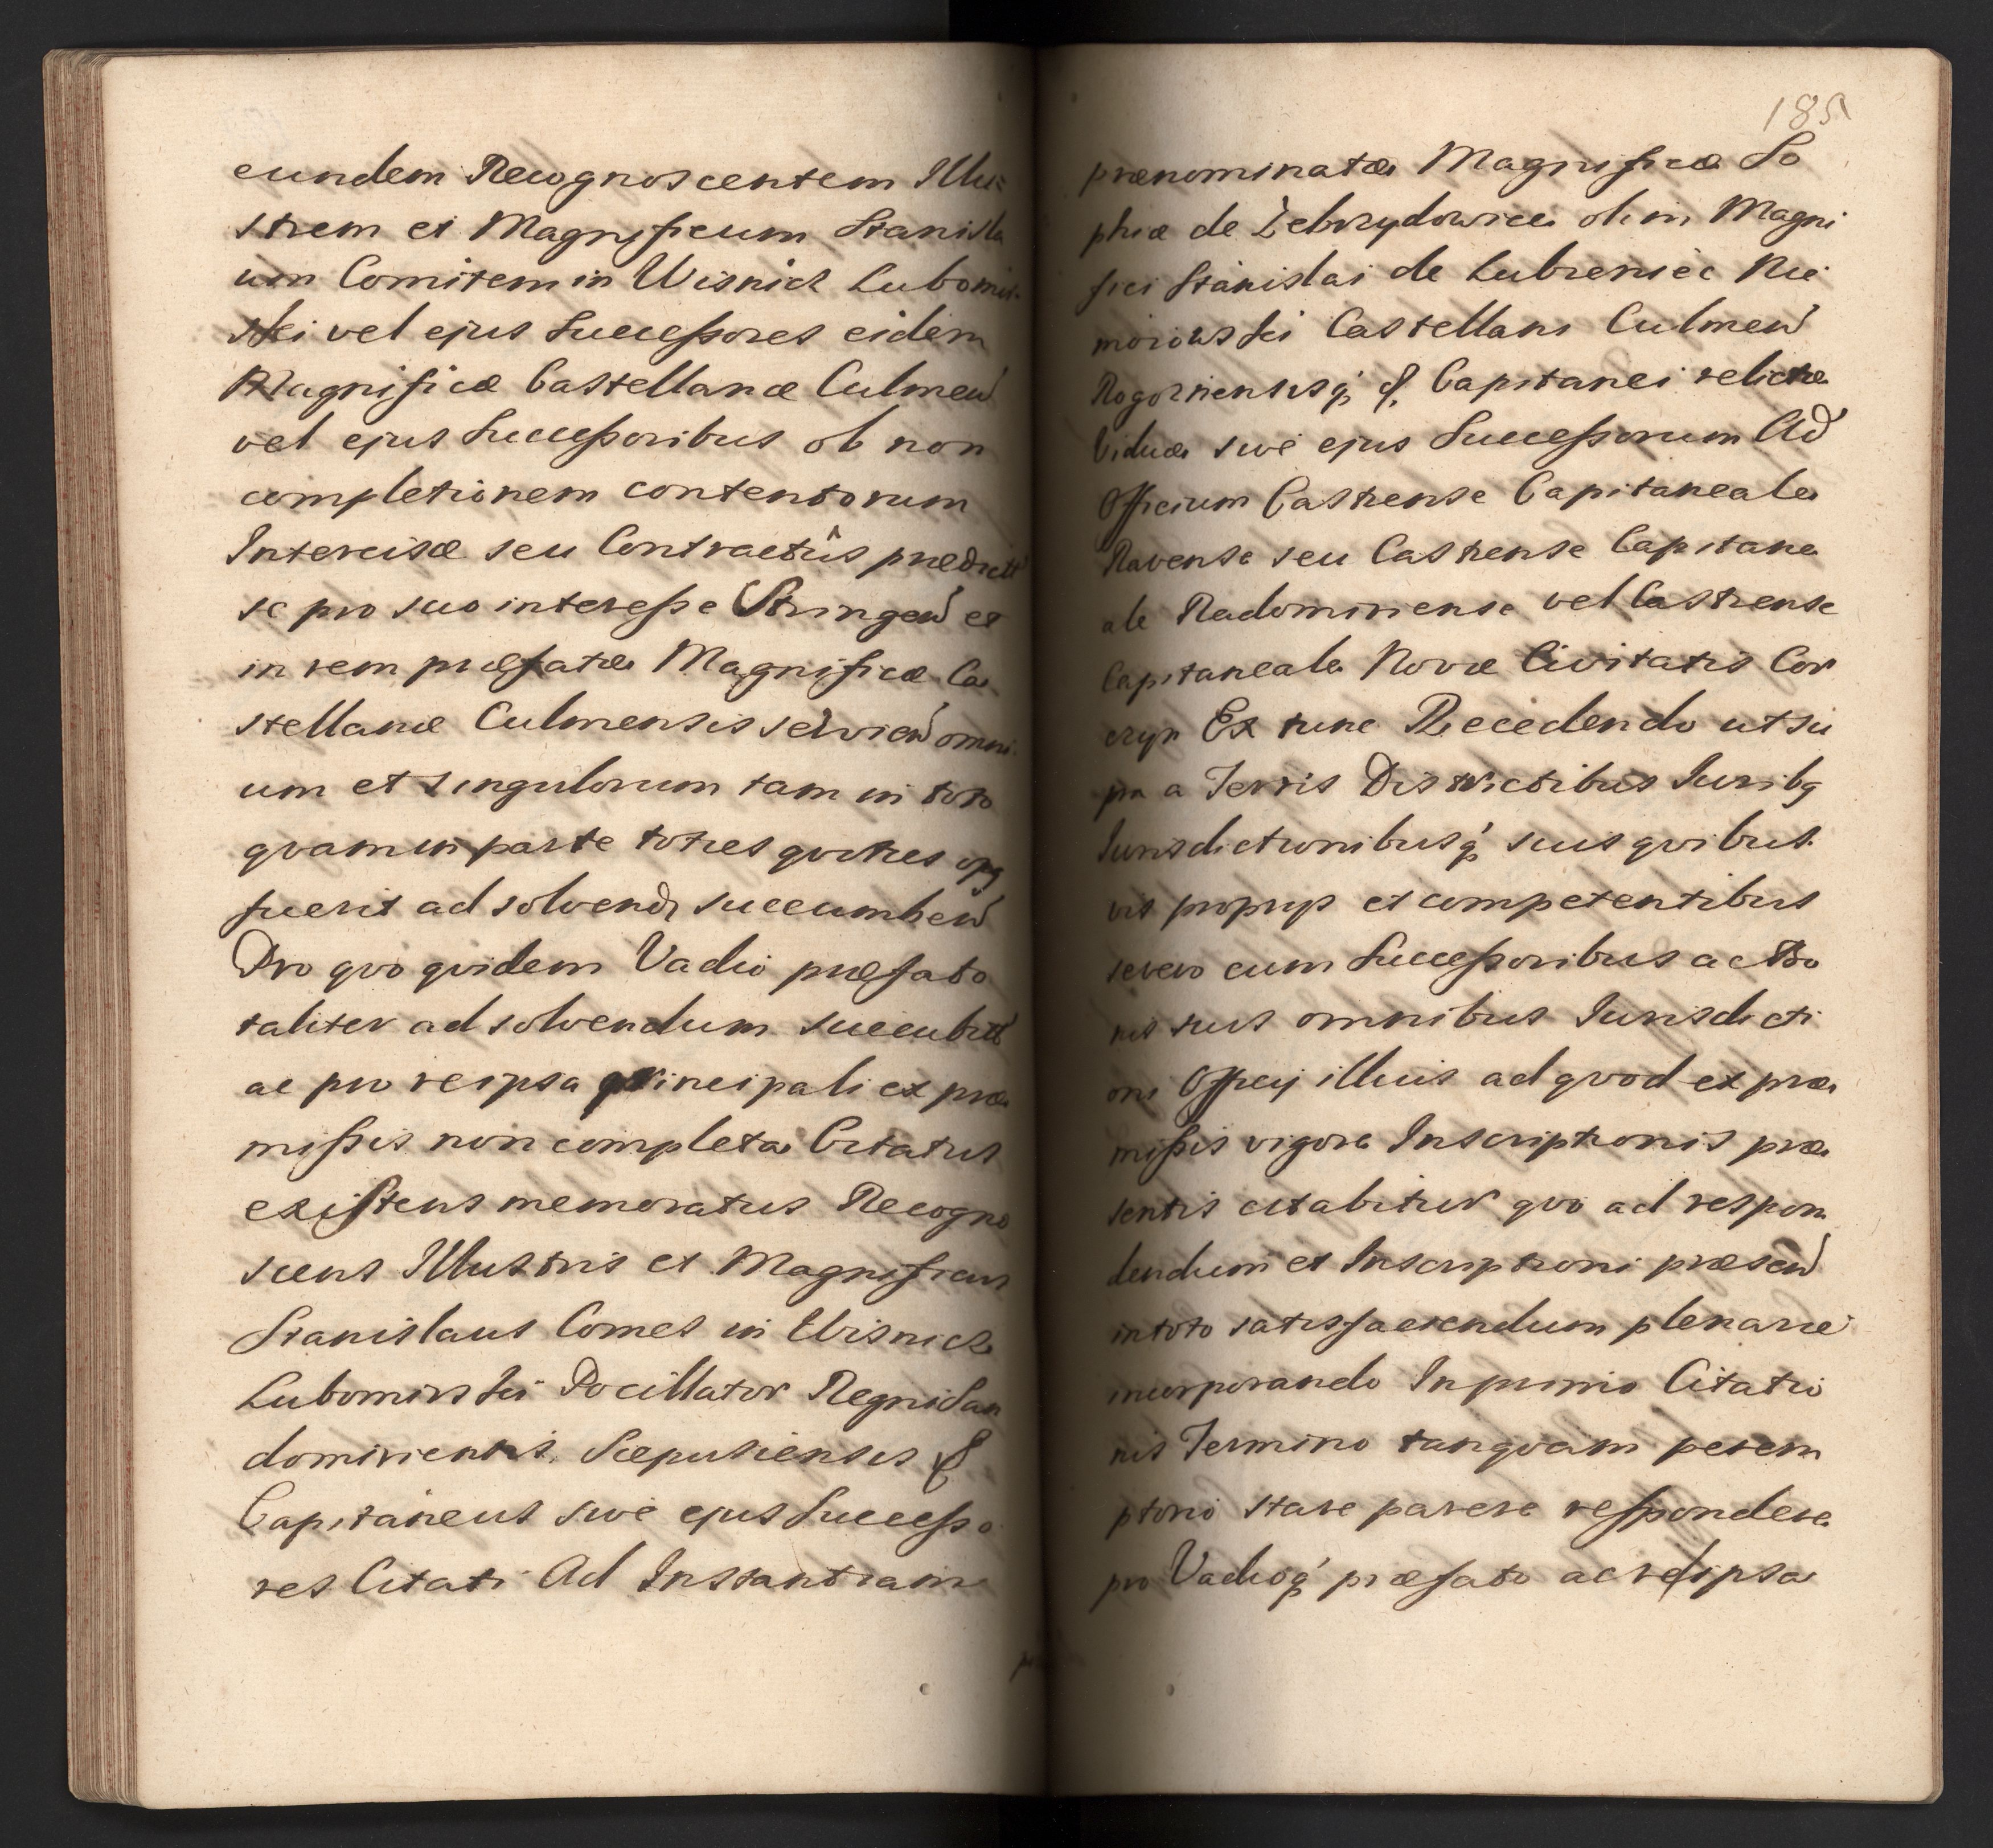 eundem Recognoscentem Illu=
strem et Magnificum Stanisla
um Comitem in Wisnicz Lubomir
ski vel ejus Successores eidem
Magnificæ Castellanæ Culmen
vel ejus Successoribus ob non
completionem contentorum
Intercisæ seu Contractûs prædict
se pro suo interesse Stringen et
in rem præfatæ Magnificæ Ca
stellanæ Culmensis servien omni
um et singulorum tam in toto
qvam in parte toties qvoties opq
fuerit ad solvend succumben
Pro qvo qvidem Vadio præfato
taliter ad solvendum succubitt
ac pro re ipsa principali ex præ
missis non completa Citatus
existens memoratus Recogno
scens Illustris et Magnificus
Stanislaus Comes in Wisnicz
Lubomirski Pocillator Regni San
domiriensis Scepusiensis &
Capitaneus sive ejus Successo
res Citati Ad Instantiam
185
prænominatæ Magnificæ So
phiæ de Zebrzydowice olim Magni
fici Stanislai de Lubieniec Nie
moiowski Castellani Culmen
Rogoznensisq; &, Capitanei relictæ
Viduæ sive ejus Successorum Ad
Officium Castrense Capitaneale
Ravense seu Castrense Capitane
ale Radomiriense vel Castrense
Capitaneale Novæ Civitatis Cor
czyn Ex tunc Recedendo ut su
pra a Terris Districtibus Juribq
Jurisdictionibusq; suis qvibus
vis propriis et competentibus
severo cum Successoribus ac Bo
nis suis omnibus Jurisdicti
oni Officij illius ad qvod ex præ
missis vigore Inscriptionis præ
sentis citabitur qvo ad respon
dendum et Inscriptioni præsen
in toto satisfaciendum plenarie
incorporando In primo Citatio
nis Termino tanqvam perem
ptorio stare parere respondere
pro Vadioq; præfato ac re ipsa